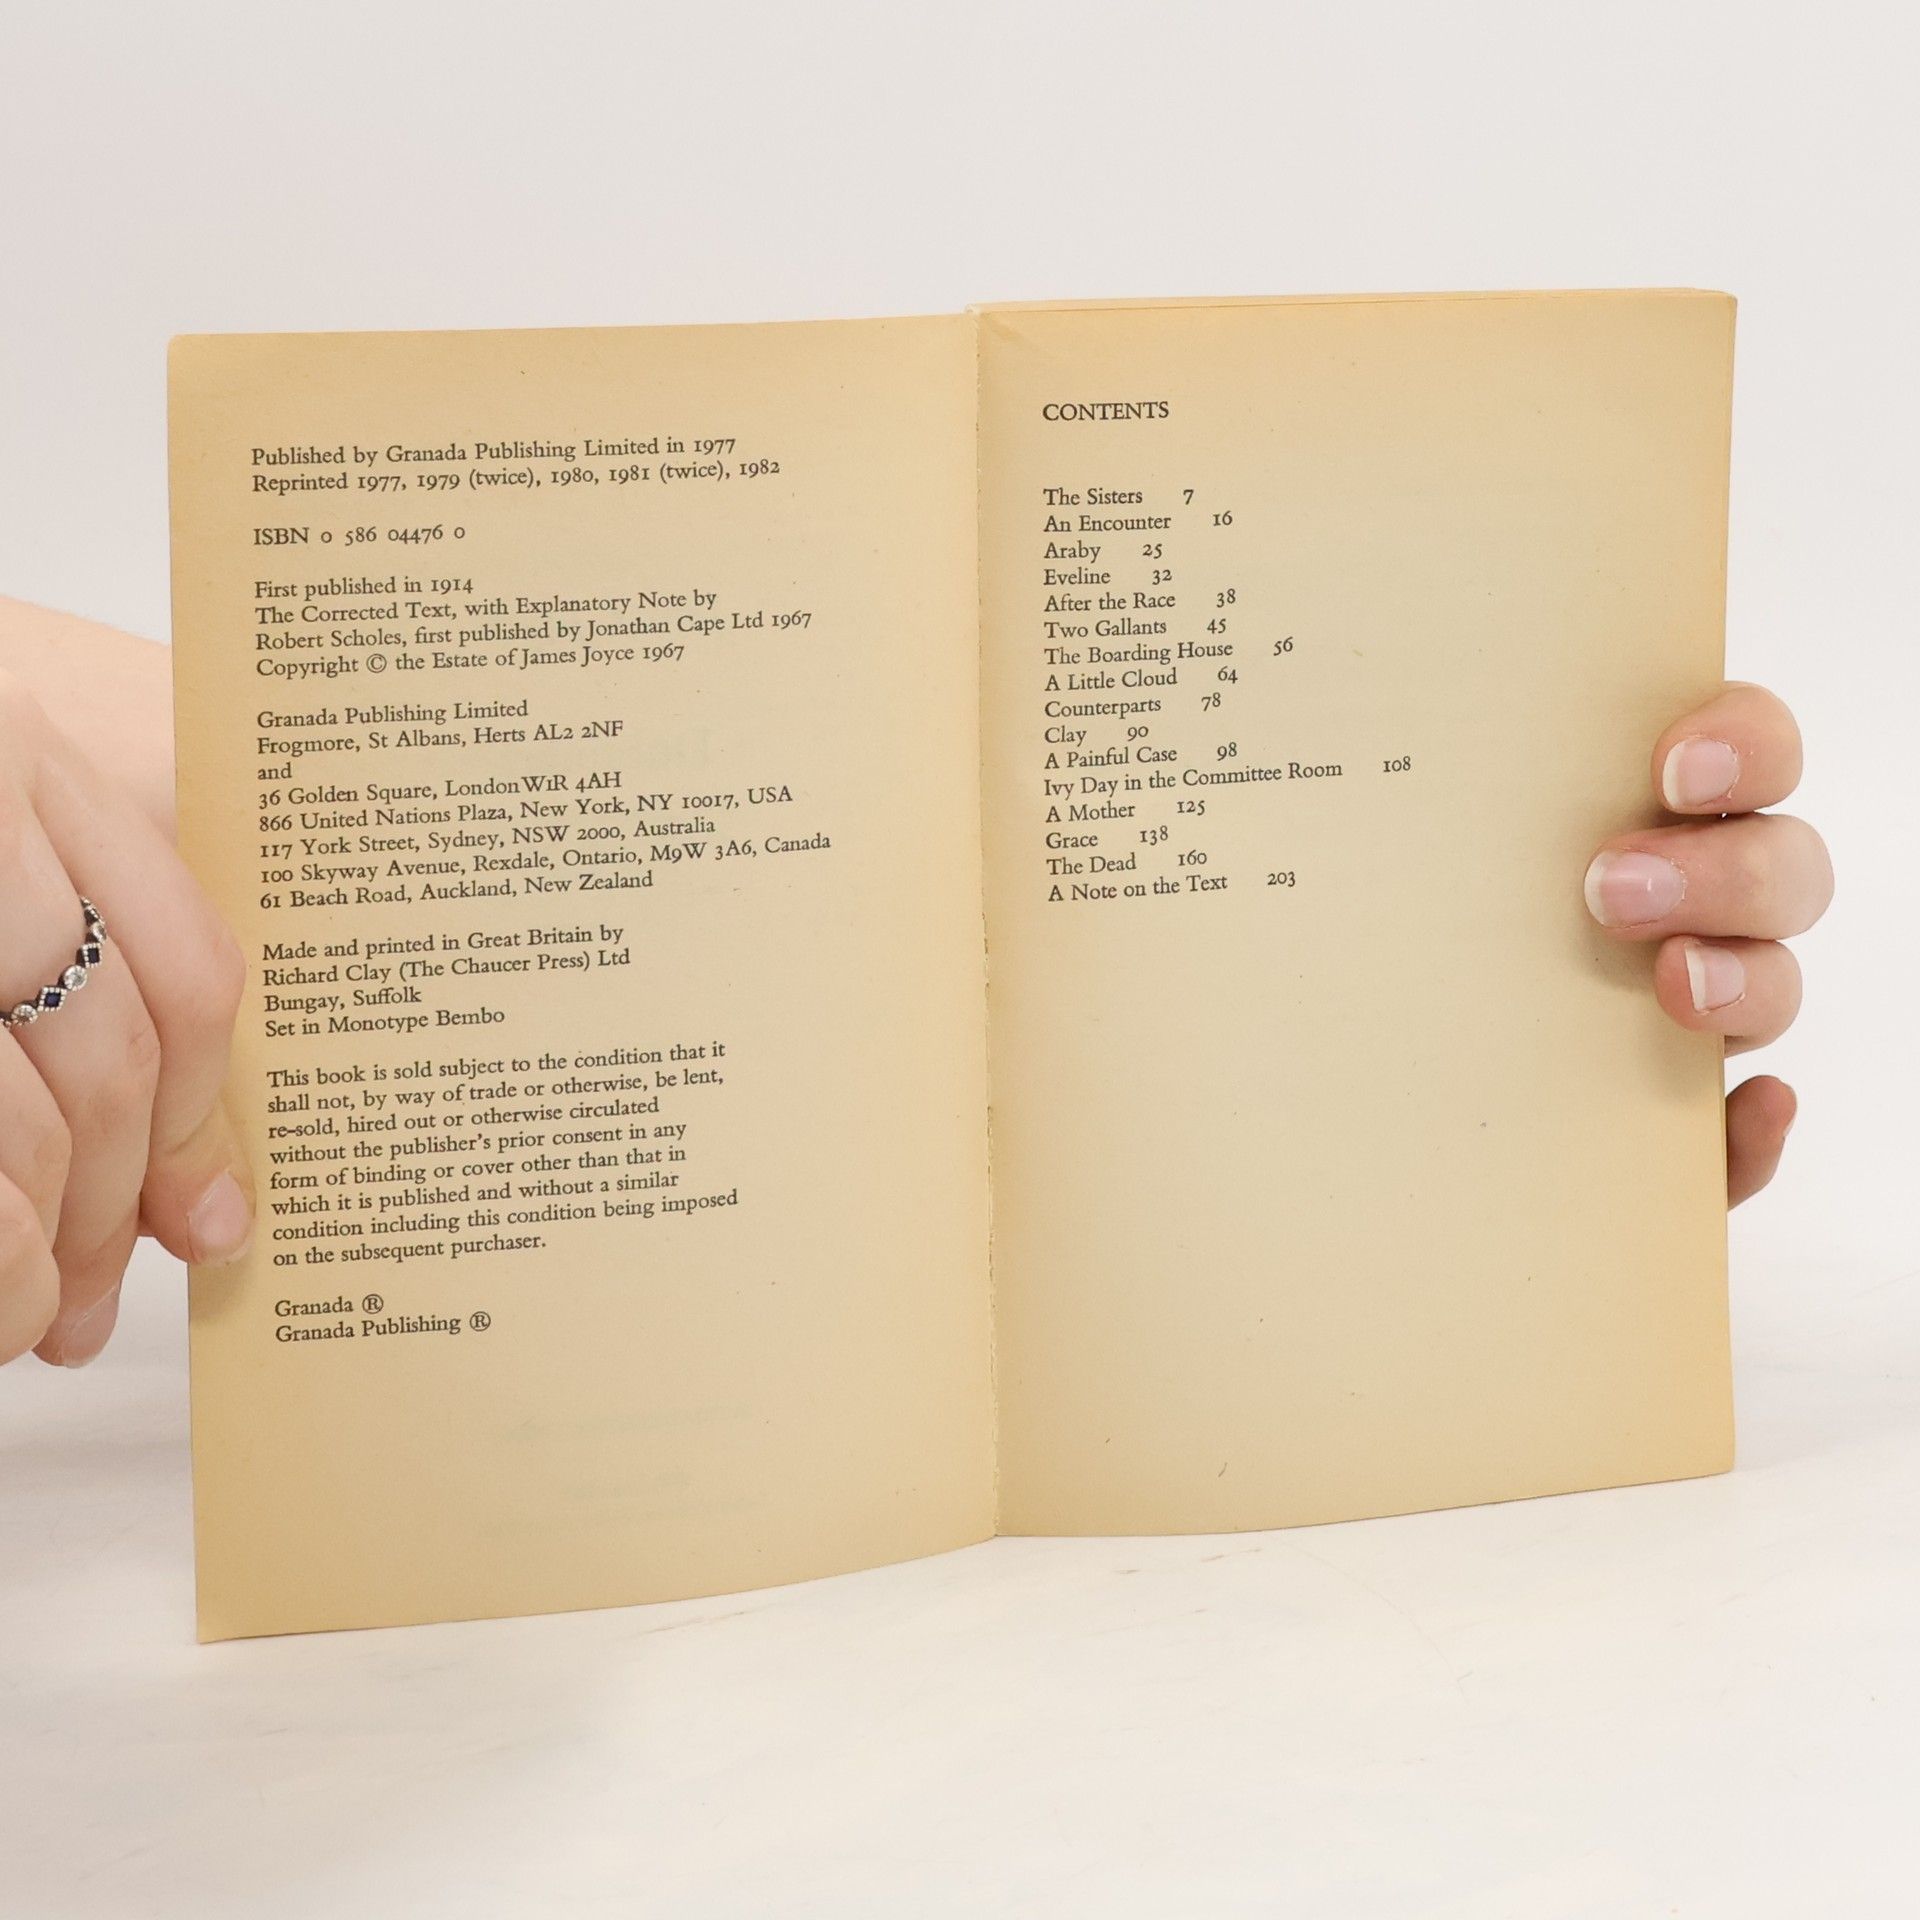 Published by Granada Publishing Limited in 1977
Reprinted 1977, 1979 (twice), 1980, 1981 (twice), 1982
ISBN 0 586 04476 0
First published in 1914
The Corrected Text, with Explanatory Note by
Robert Scholes, first published by Jonathan Cape Ltd 1967
Copyright © the Estate of James Joyce 1967
Granada Publishing Limited
Frogmore, St Albans, Herts AL2 2NF
and
36 Golden Square, London W1R 4AH
866 United Nations Plaza, New York, NY 10017, USA
117 York Street, Sydney, NSW 2000, Australia
100 Skyway Avenue, Rexdale, Ontario, M9W 3A6, Canada
61 Beach Road, Auckland, New Zealand
Made and printed in Great Britain by
Richard Clay (The Chaucer Press) Ltd
Bungay, Suffolk
Set in Monotype Bembo
This book is sold subject to the condition that it
shall not, by way of trade or otherwise, be lent,
re-sold, hired out or otherwise circulated
without the publisher's prior consent in any
form of binding or cover other than that in
which it is published and without a similar
condition including this condition being imposed
on the subsequent purchaser.
Granada ®
Granada Publishing ®
CONTENTS
The Sisters 7
An Encounter 16
Araby 25
Eveline 32
After the Race 38
Two Gallants 45
The Boarding House 56
A Little Cloud 64
Counterparts 78
Clay 90
A Painful Case 98
Ivy Day in the Committee Room 108
A Mother 125
Grace 138
The Dead 160
A Note on the Text 203